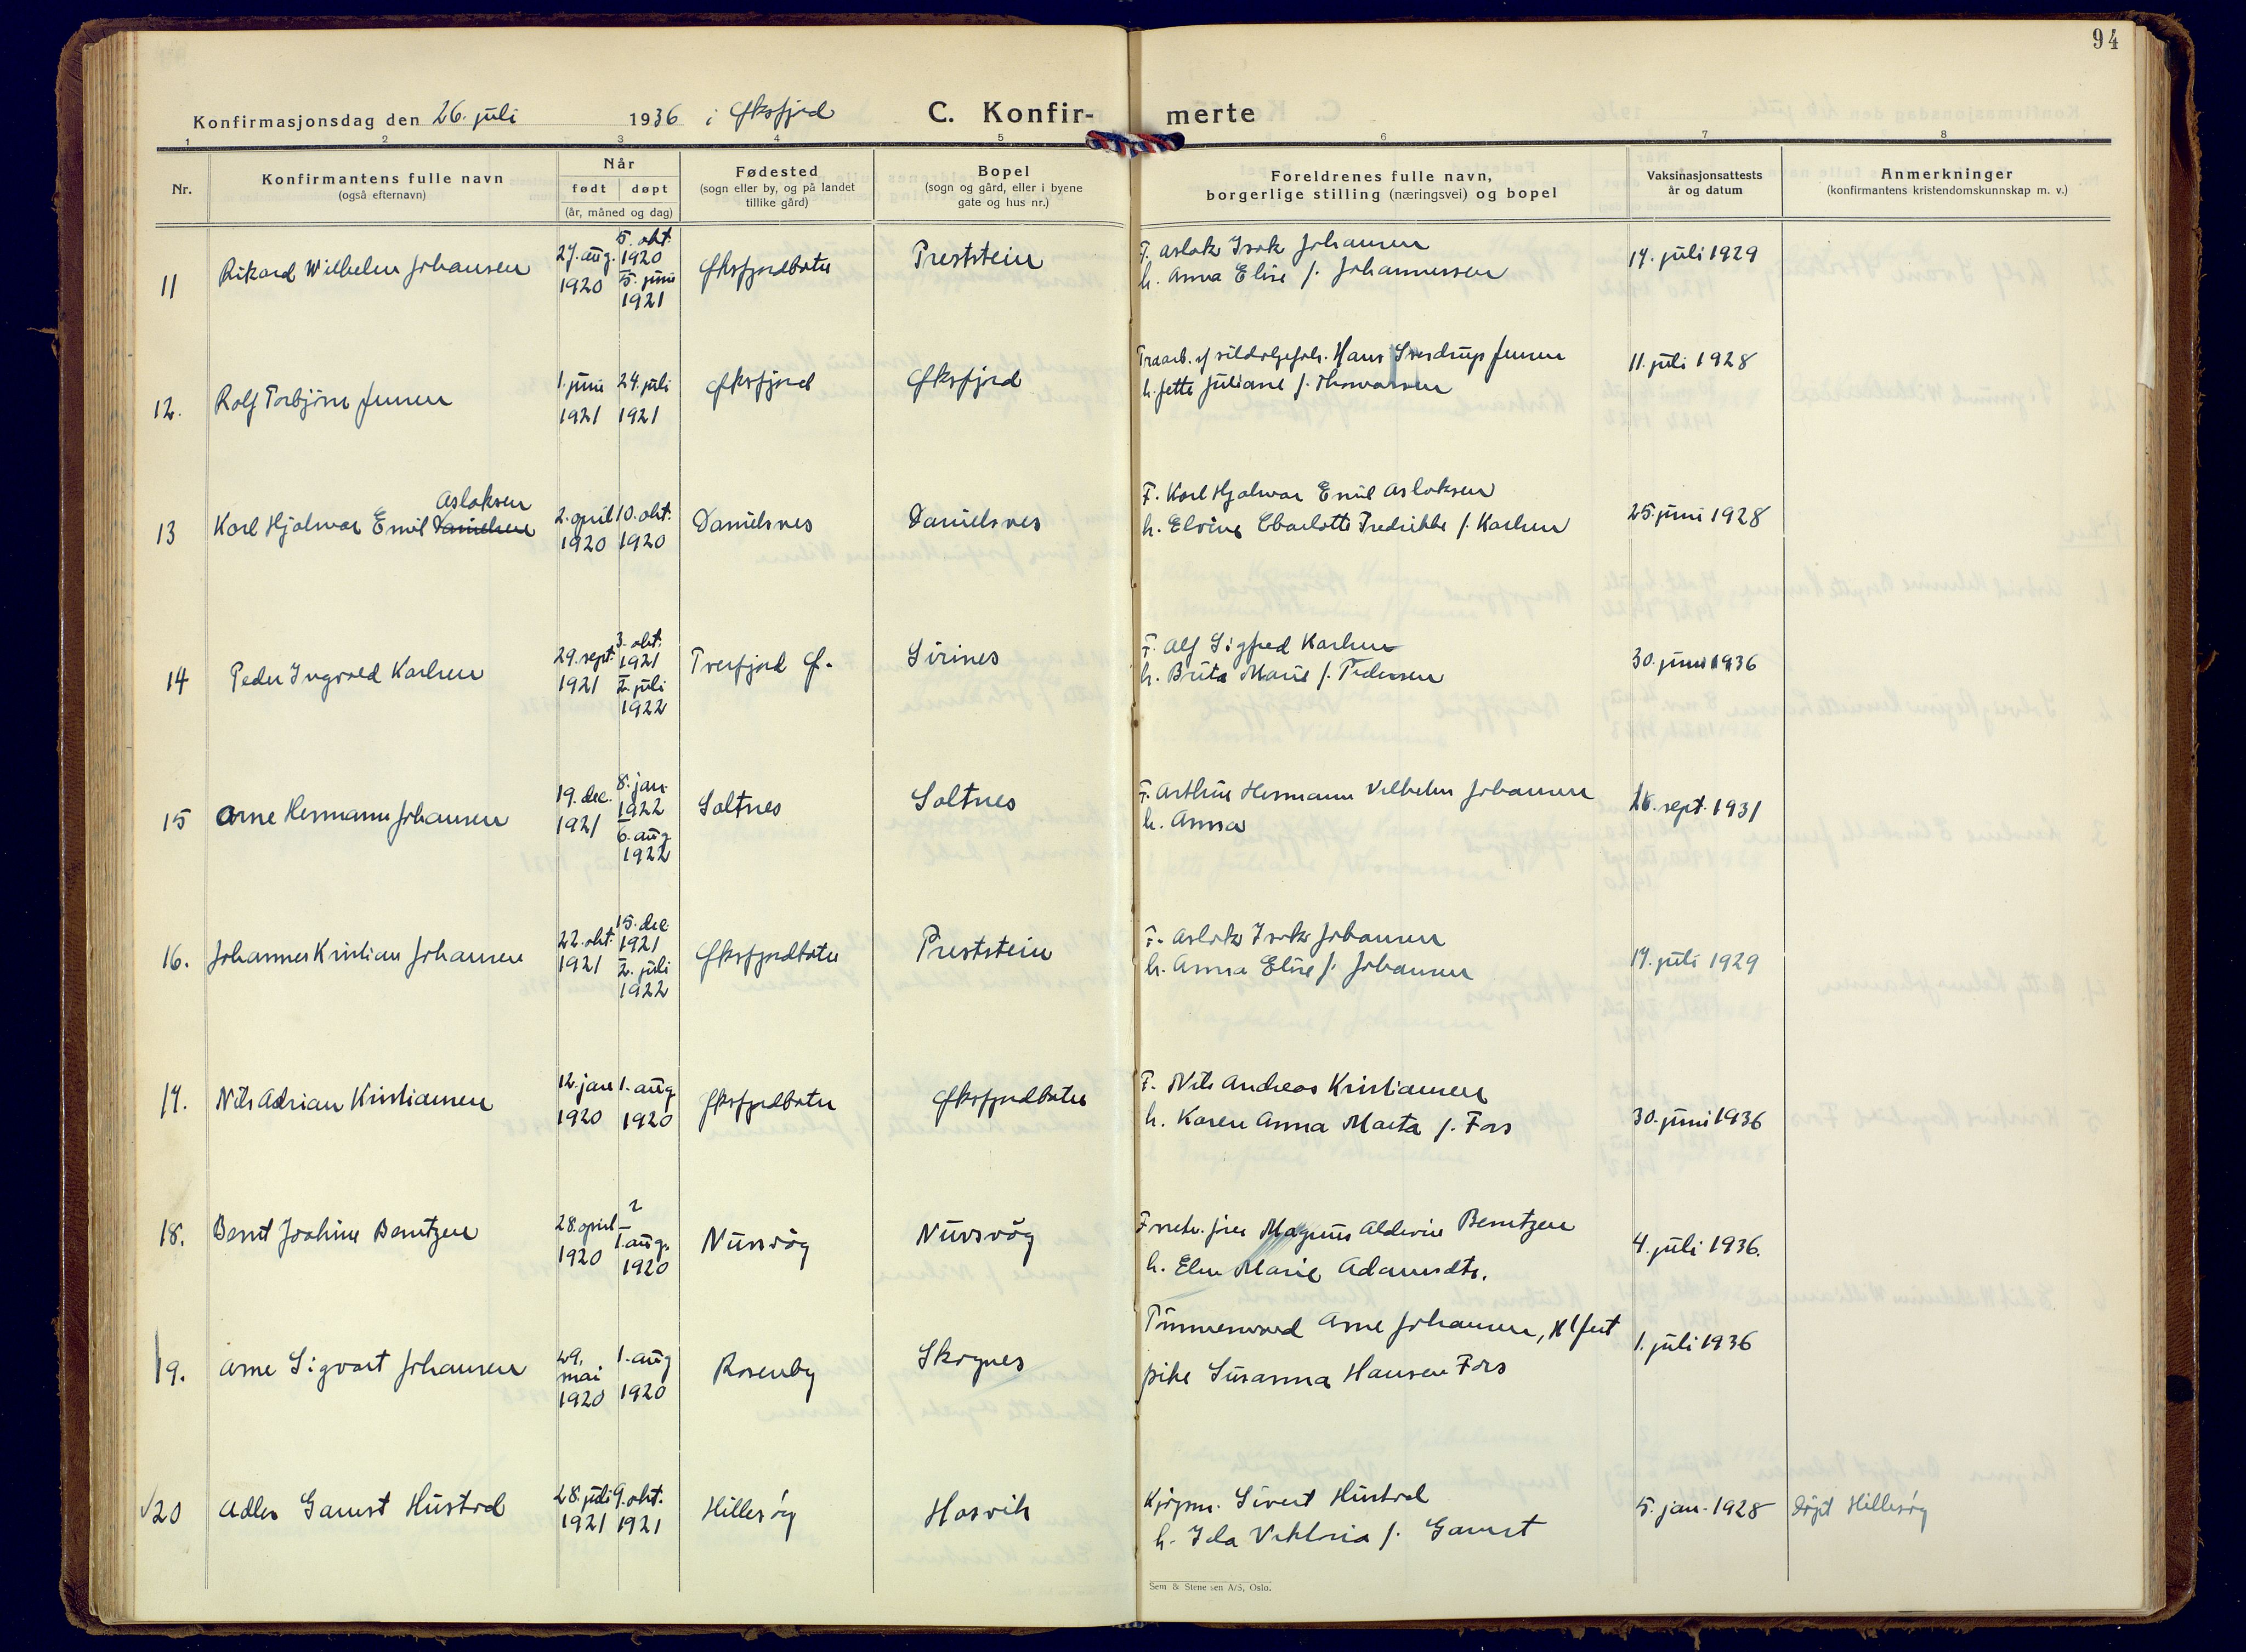 94
Konfirmasjonsdag den 26. juli 1936 i Øksfjord C. Konfir- merte
1 2 3 4 5 6 7 8
Nr. Konfirmantens fulle navn (også efternavn) Når født døpt (år, måned og dag) Fødested (sogn eller by, og på landet tillike gård) Bopel (sogn og gård, eller i byene gate og hus nr.) Foreldrenes fulle navn, borgerlige stilling (næringsvei) og bopel Vaksinasjonsattests år og datum Anmerkninger (konfirmantens kristendomskunnskap m. v.)
11 Rikard Wilhelm Johansen 27. aug. 1920 5. okt. 1920 5. juni 1921 Øksfjordbotn Preststein F. Aslak Isak Johansen 17. juli 1929
h. Anna Elise f. Johannessen
12. Rolf Torbjørn Jensen 1. juni 1921 24. juli 1921 Øksfjord Øksfjord Hans Sverdrup Jensen 11. juli 1928
h. Jette Juliane f. Thomassen
13 Karl Hjalmar Emil Danielsen Aslaksen 2. april 1920 10. okt. 1920 Danielsnes Danielsnes F. Karl Hjalmar Emil Aslaksen 25. juni 1928
h. Elvine Charlotte Fredrikke f. Karlsen
14 Peder Ingvald Karlsen 29. sept. 1921 3. okt. 1921 2. juli 1922 Tverfjord Ø. Sirines F. Alf Sigfred Karlsen 30. juni 1936
h. Brita Marie f. Pedersen
15 Arne Hermann Johansen 19. dec. 1921 8. jan. 1922 6. aug 1922 Saltnes Saltnes F. Arthur Hermann Vilhelm Johansen sept. 1931
h. Anna
16. Johannes Kristian Johansen 22. okt. 1921 15. dec 1921 2. juli 1922 Øksfjordbotn Preststein F. Aslak Isak Johansen 17. juli 1929
h. Anna Elise f. Johansen
17. Nils Adrian Kristiansen 12. jan 1920 1. aug 1920 Øksfjordbotn Øksfjordbotn F. Nils Andreas Kristiansen 30. juni 1936
h. Karen Anna Marta f. Fors
18. Bernt Joakim Berntzen 28. april 1920 ? 1. aug. 1920 Nuvsvåg Nuvsvåg Magnus Aldevin Berntzen 4. juli 1936.
h. Elen Marie Adamsdtr.
19. Arne Sigvart Johansen 29. mai 1920 1. aug 1920 Rosenby Skognes Tømmermand Arne Johansen, H'fest 1. juli 1936
pike Susanna Hansen Fors
20 Adler Gamst Hustad 28. juli 1921 9. okt. 1921 Hillesøy Hasvik Kjøpm. Sivert Hustad 5. jan. 1928 døpt Hillesøy
h. Ida Viktoria f. Gamst
Sem & Stenersen A/S, Oslo.